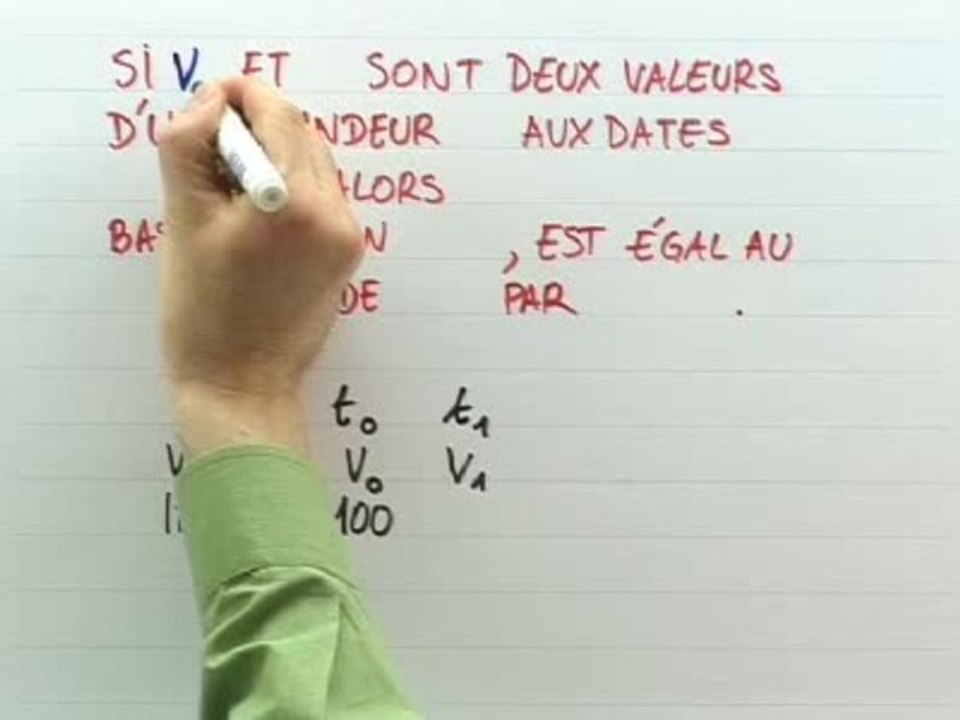 SI V ET SONT DEUX VALEURS
D'U NDEUR AUX DATES
ALORS
BAS N , EST ÉGAL AU
DE PAR .
t₀ t₁
V V₀ V₁
100